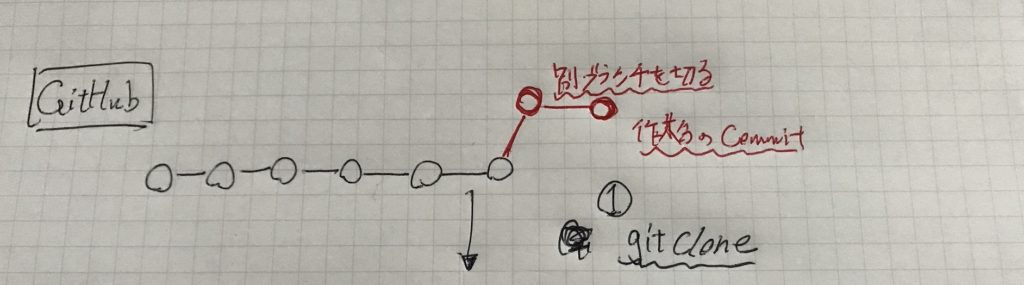 GitHub
別ブランチを切る
作業分のCommit
①
git clone